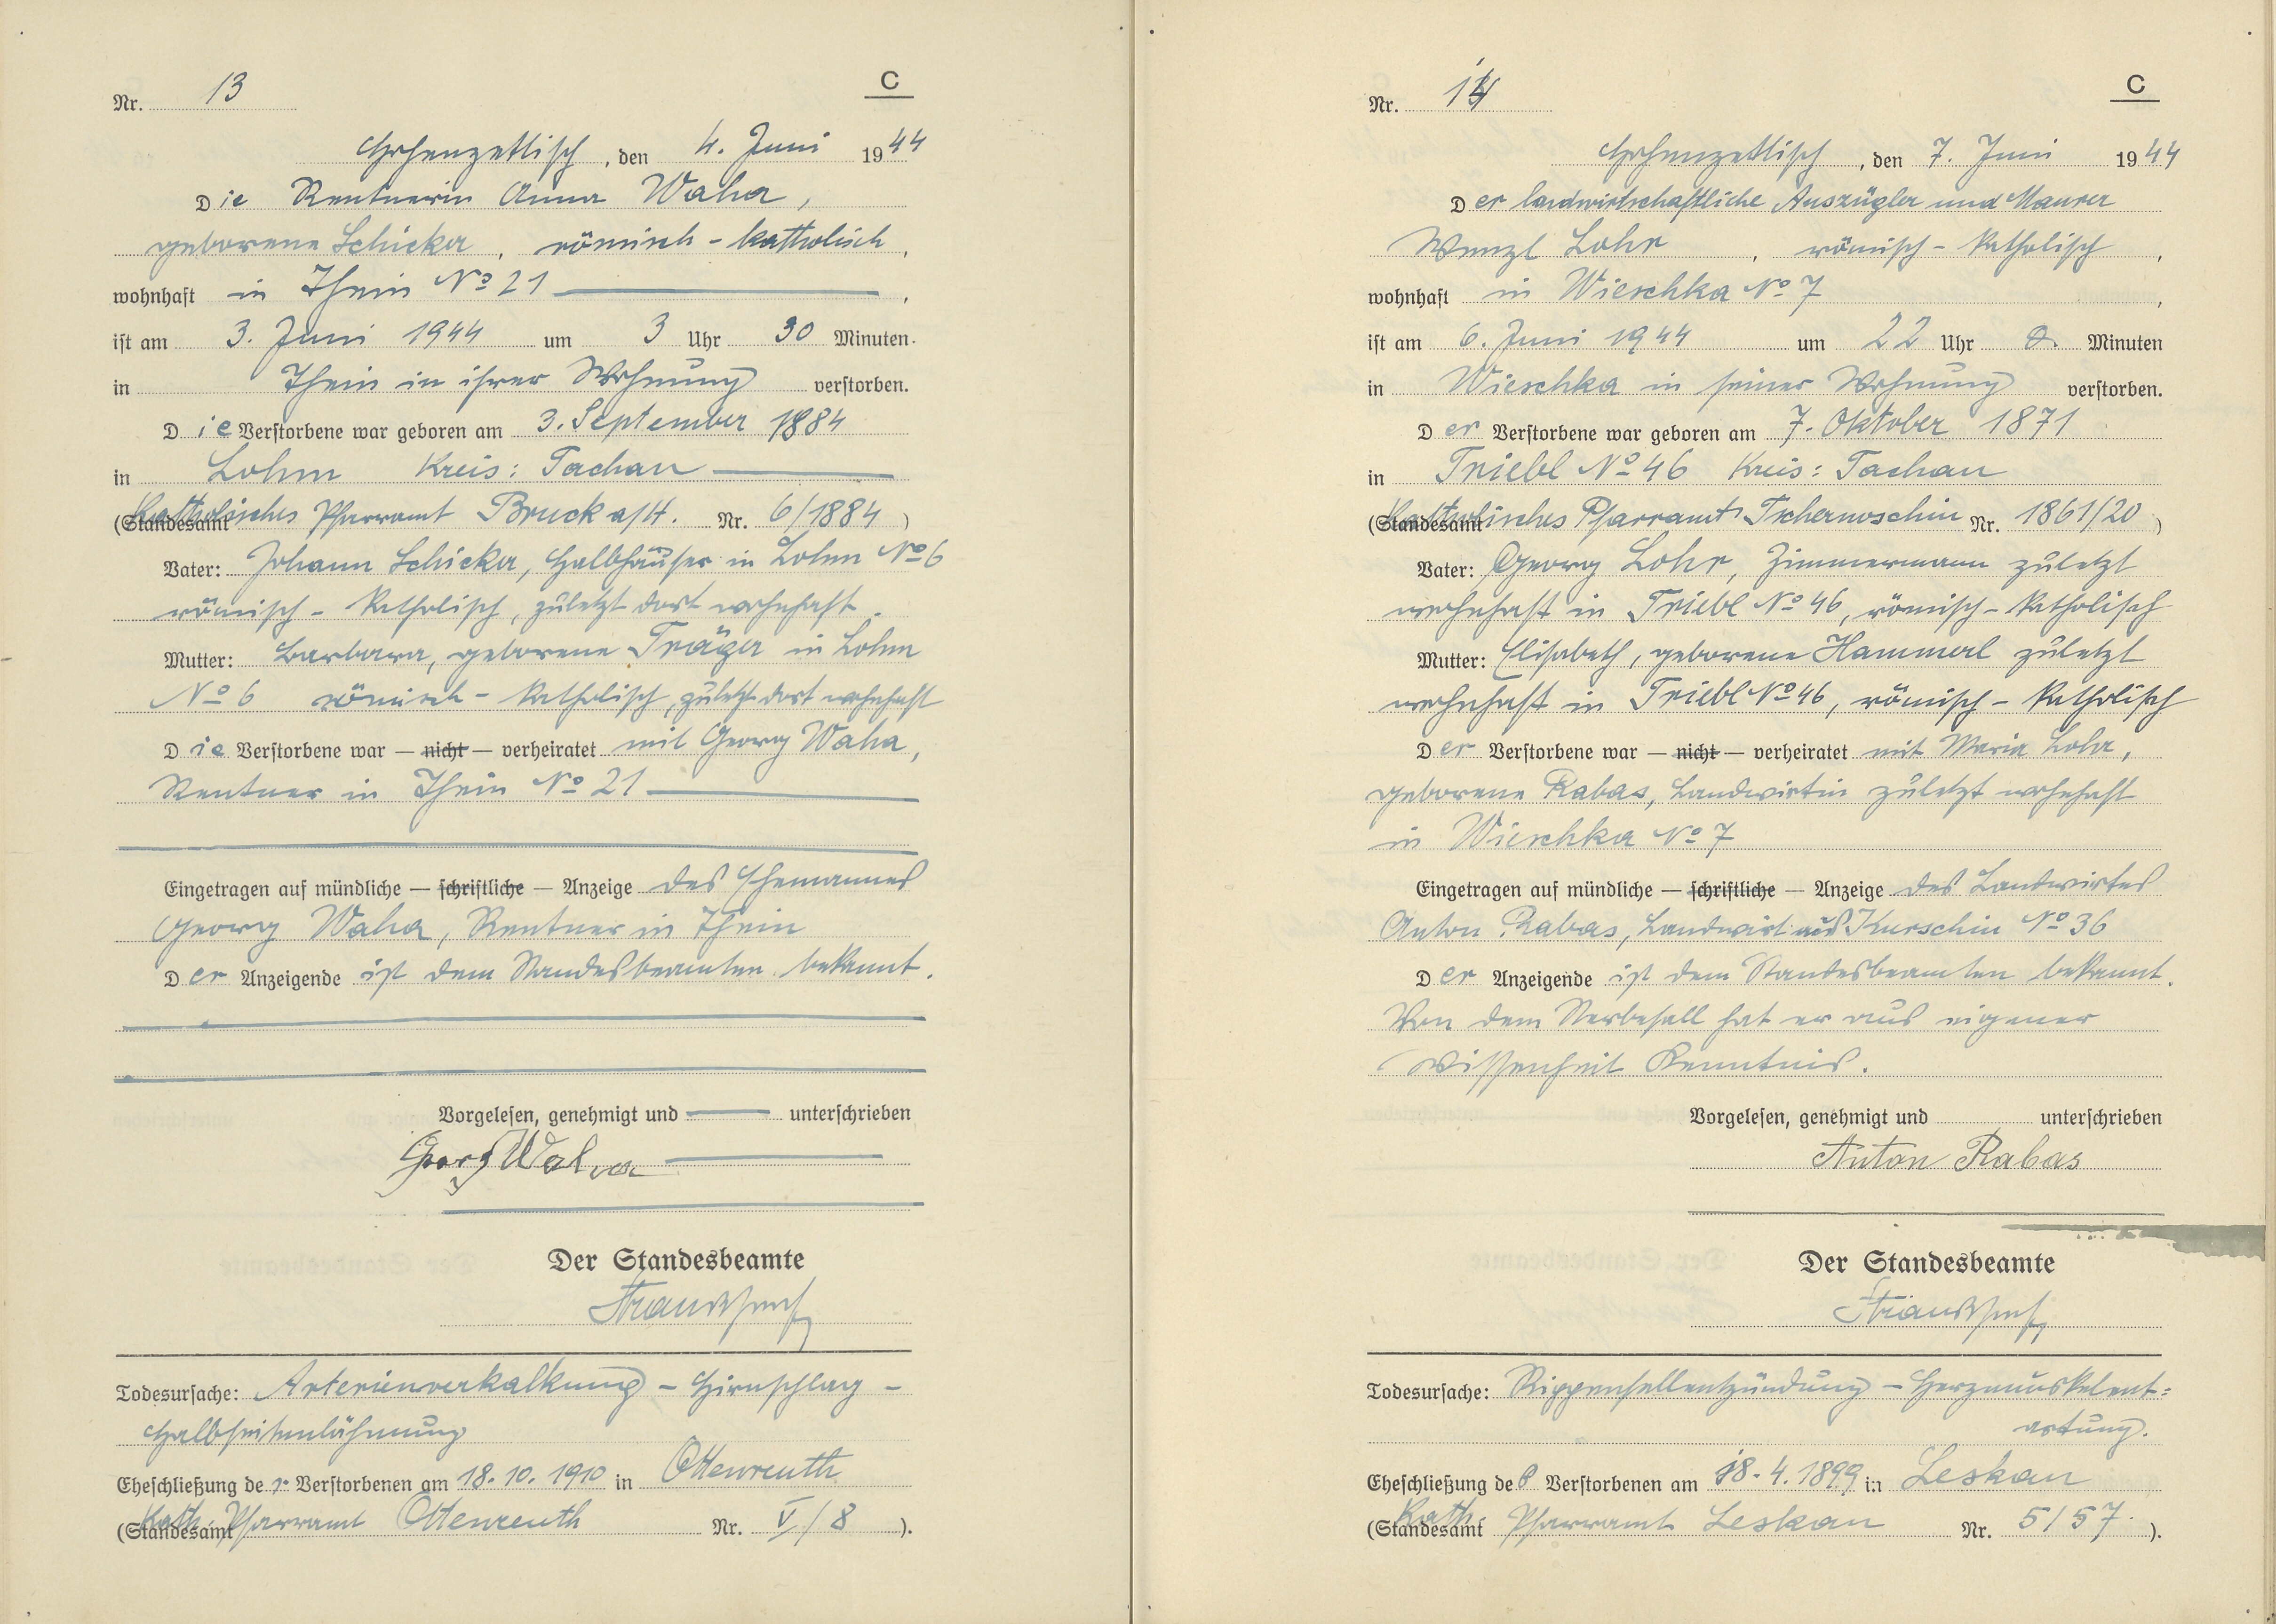 Nr. 13 C
Hohenzetlisch, den 4. Juni 1944
Die Rentnerin Anna Waha,
geborene Schicker, römisch-katholisch,
wohnhaft in Thein No 21,
ist am 3. Juni 1944 um 3 Uhr 30 Minuten.
in Thein in ihrer Wohnung verstorben.
Die Verstorbene war geboren am 3. September 1884
in Lohm Kreis: Tachau
(Standesamt Katholisches Pfarramt Bruck a/H. Nr. 6/1884)
Vater: Johann Schicker, Halbhäusler in Lohm No 6
römisch-katholisch, zuletzt dort wohnhaft.
Mutter: Barbara, geborene Träger in Lohm
No 6 römisch-katholisch, zuletzt dort wohnhaft
Die Verstorbene war — nicht — verheiratet mit Georg Waha,
Rentner in Thein No 21
Eingetragen auf mündliche — schriftliche — Anzeige des Ehemannes
Georg Waha, Rentner in Thein
Der Anzeigende ist dem Standesbeamten bekannt.
Vorgelesen, genehmigt und unterschrieben
Georg Waha
Der Standesbeamte
Todesursache: Arterienverkalkung - Hirnschlag -
Halbseitenlähmung
Eheschließung der Verstorbenen am 18.10.1910 in Ottenreuth
(Standesamt Kath. Pfarramt Ottenreuth Nr. V/8).
Nr. 14 C
Hohenzetlisch, den 7. Juni 1944
Der landwirtschaftliche Auszügler und Maurer
Wenzl Lohr, römisch-katholisch,
wohnhaft in Wieschka No 7,
ist am 6. Juni 1944 um 22 Uhr Minuten
in Wieschka in seiner Wohnung verstorben.
Der Verstorbene war geboren am 7. Oktober 1871
in Triebl No 46 Kreis: Tachau
(Standesamt Katholisches Pfarramt Tschernoschin Nr. 1861/20)
Vater: Georg Lohr, Zimmermann zuletzt
wohnhaft in Triebl No 46, römisch-katholisch
Mutter: Elisabeth, geborene Hammerl zuletzt
wohnhaft in Triebl No 46, römisch-katholisch
Der Verstorbene war — nicht — verheiratet mit Maria Lohr,
geborene Rabas, Landwirtin zuletzt wohnhaft
in Wieschka No 7
Eingetragen auf mündliche — schriftliche — Anzeige des Landwirtes
Anton Rabas, Landwirt aus Kurschin No 36
Der Anzeigende ist dem Standesbeamten bekannt.
Von dem Sterbefall hat er aus eigener
Wissenheit Kenntnis.
Vorgelesen, genehmigt und unterschrieben
Anton Rabas
Der Standesbeamte
Todesursache: Rippenfellentzündung - Herzmuskelent=
artung.
Eheschließung des Verstorbenen am 18.4.1899 in Leskau
(Standesamt Kath. Pfarramt Leskau Nr. 5/57.).